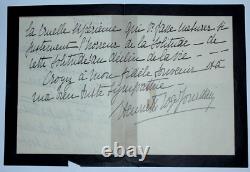 la cruelle expérience qui ... fasse mesurer si
justement l'horreur de la solitude — de
cette solitude au milieu de la vie —
Croyez à mon fidèle souvenir et à
ma bien triste sympathie
Henriette